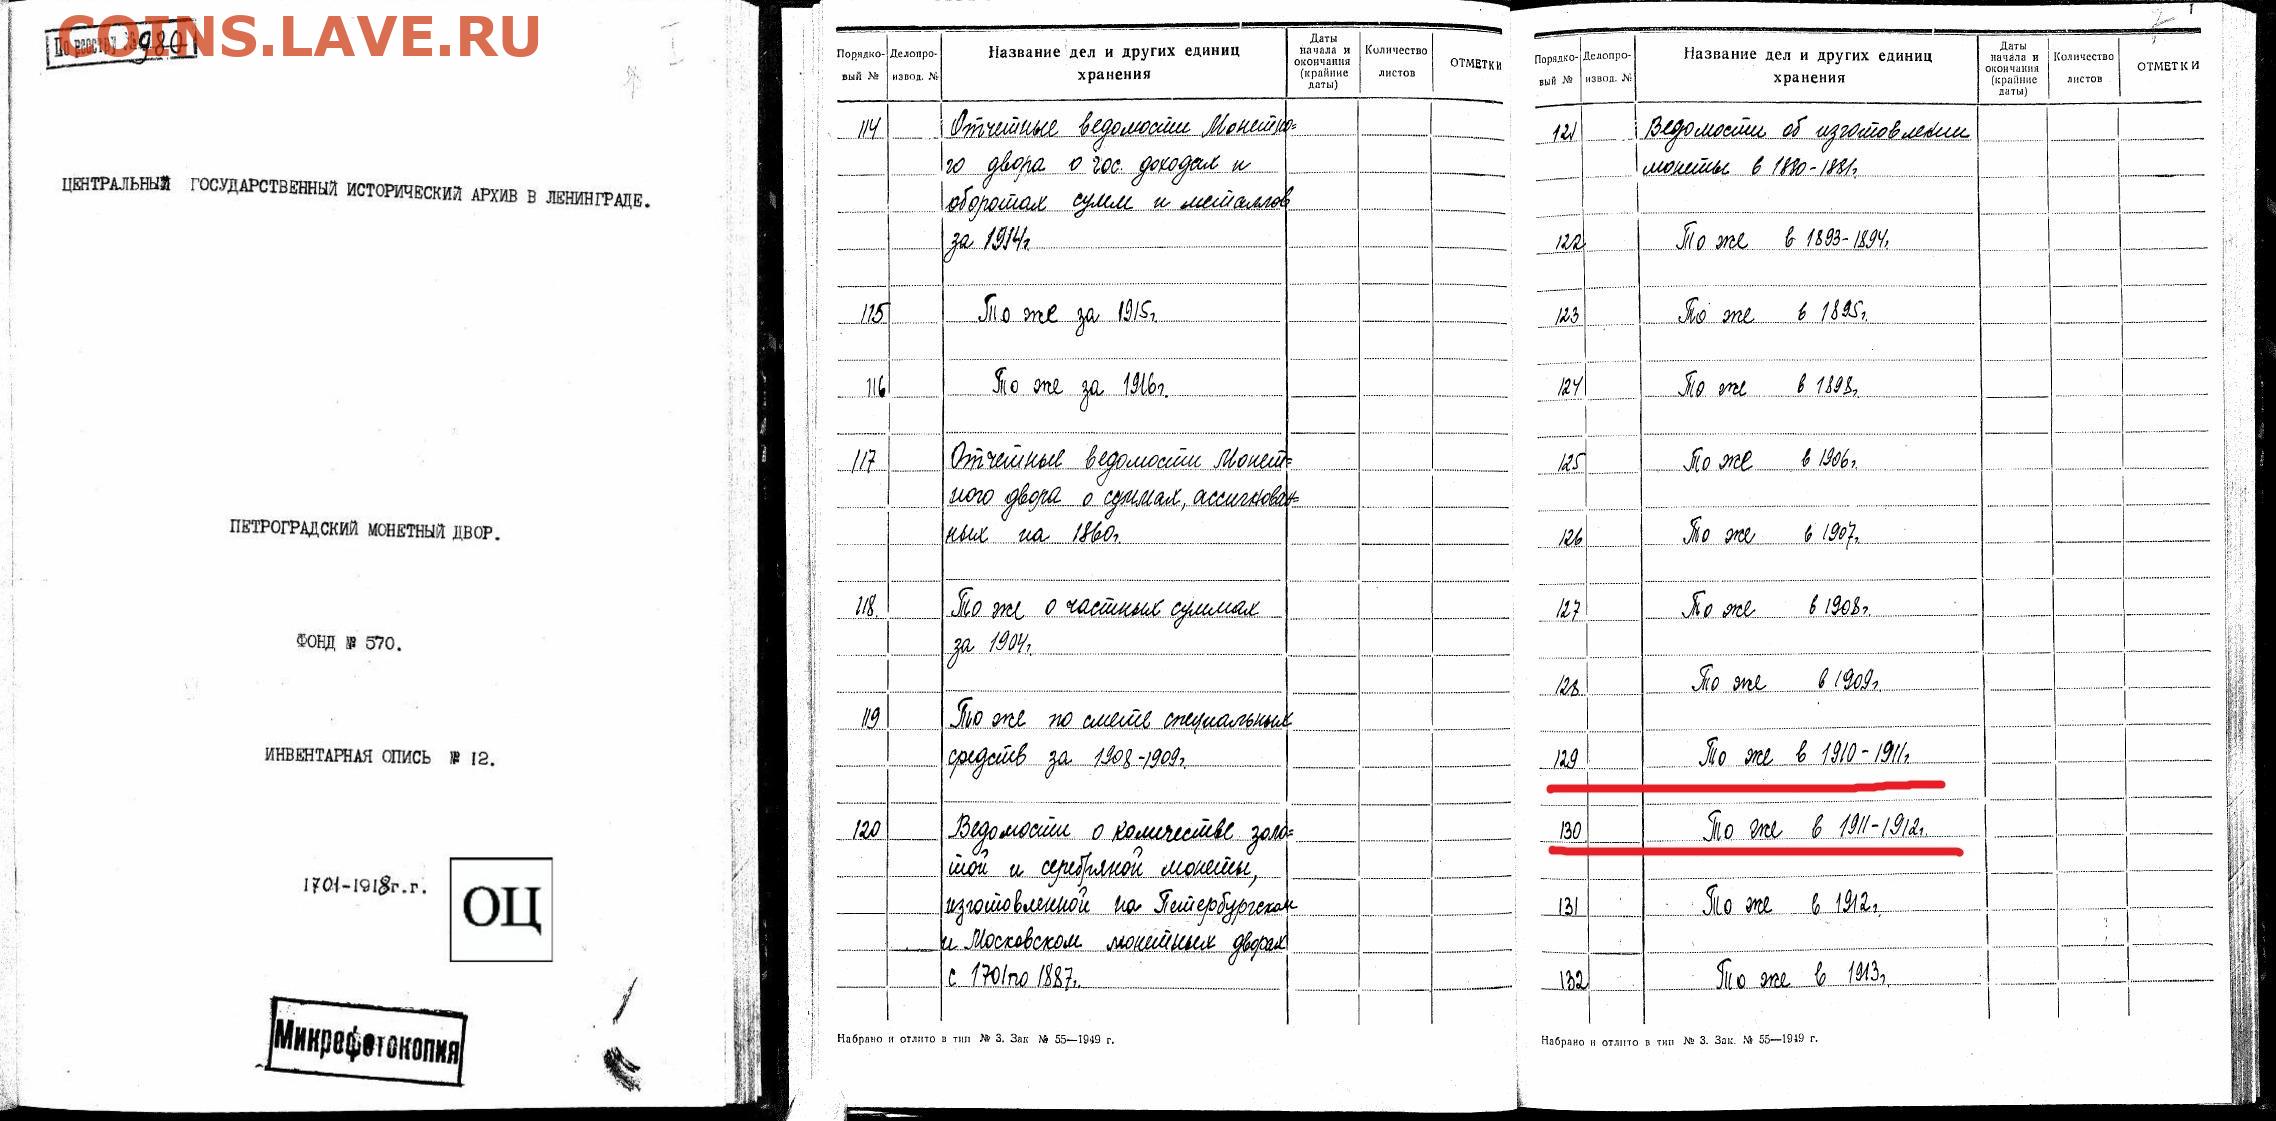 COINS.LAVE.RU
По реестру № 980
ЦЕНТРАЛЬНЫЙ ГОСУДАРСТВЕННЫЙ ИСТОРИЧЕСКИЙ АРХИВ В ЛЕНИНГРАДЕ.
ПЕТРОГРАДСКИЙ МОНЕТНЫЙ ДВОР.
ФОНД № 570.
ИНВЕНТАРНАЯ ОПИСЬ № 12.
1701-1918г.г.
ОЦ
Микрофотокопия
Порядко-вый № Делопро-извод. № Название дел и других единиц хранения Даты начала и окончания (крайние даты) Количество листов ОТМЕТКИ
114 Отчетные ведомости Монетно=
го двора о гос. доходах и
оборотах сумм и металлов
за 1914г.
115 То же за 1915г.
116 То же за 1916г.
117 Отчетные ведомости Монет=
ного двора о суммах, ассигнован=
ных на 1860г.
118. То же о частных суммах
за 1904г.
119 То же по смете специальных
средств за 1908-1909г.
120 Ведомости о количестве золо=
той и серебряной монеты,
изготовленной на Петербургском
и Московском монетных дворах
с 1701 по 1887г.
Набрано и отлито в тип № 3. Зак № 55—1949 г.
Порядко-вый № Делопро-извод. № Название дел и других единиц хранения Даты начала и окончания (крайние даты) Количество листов ОТМЕТКИ
121 Ведомости об изготовлении
монеты в 1880-1881г.
122 То же в 1893-1894г.
123 То же в 1895г.
124 То же в 1898г.
125 То же в 1906г.
126 То же в 1907г.
127 То же в 1908г.
128 То же в 1909г.
129 То же в 1910-1911г.
130 То же в 1911-1912г.
131 То же в 1912г.
132 То же в 1913г.
Набрано и отлито в тип № 3. Зак. № 55—1949 г.